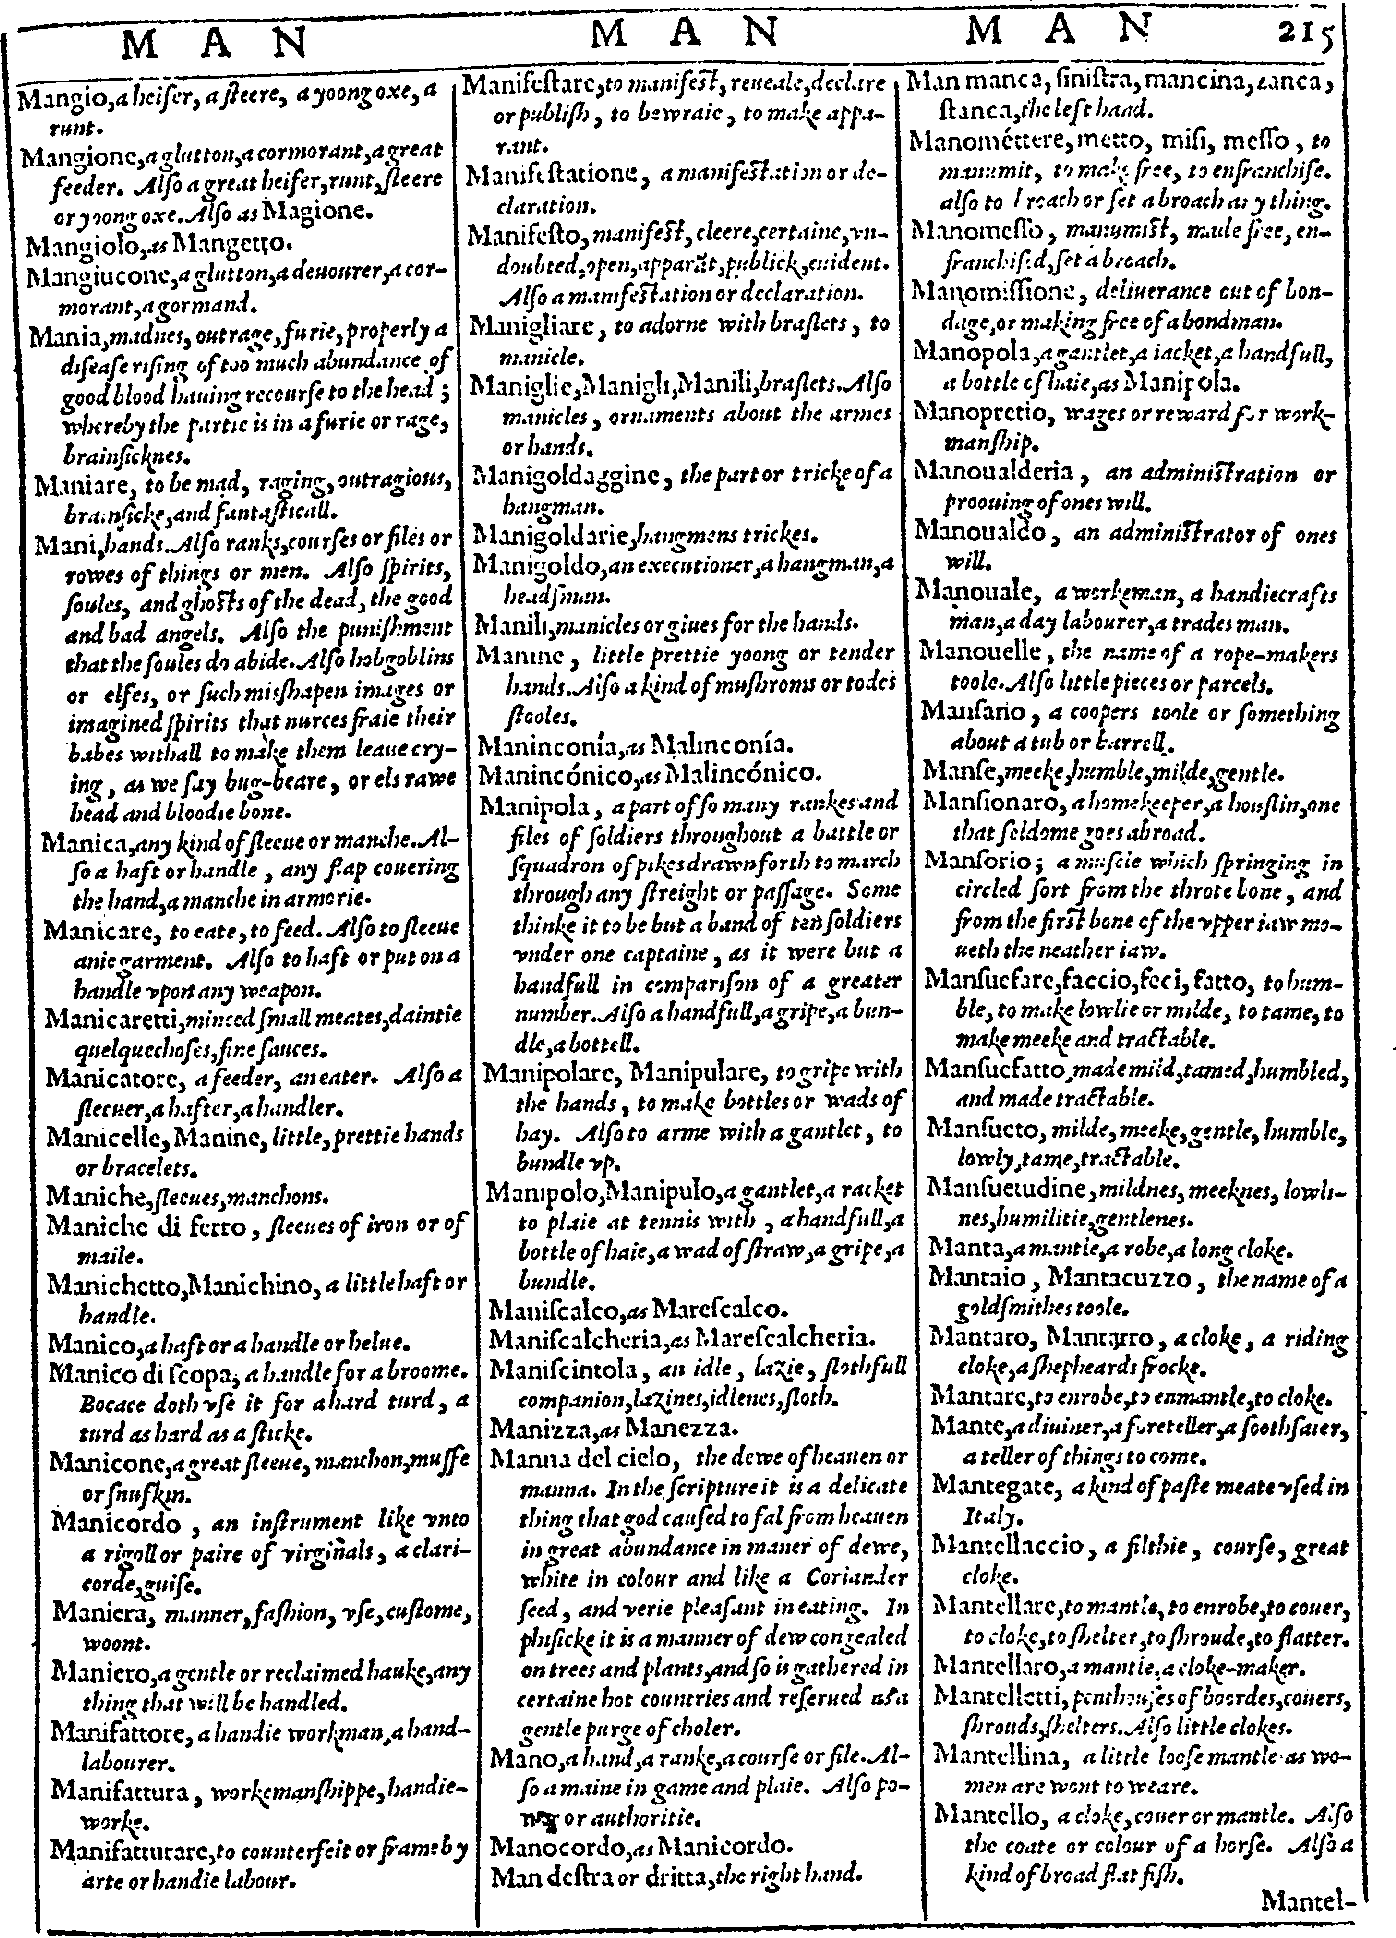 M A N M A N M A N 215
Mangio, a heifer, a steere, a yoong oxe, a
runt.
Mangione, a glutton, a cormorant, a great
feeder. Also a great heifer, runt, steere
or yoong oxe. Also as Magione.
Mangiolo, as Mangetto.
Mangiucone, a glutton, a deuourer, a cor-
morant, a gormand.
Mania, madnes, outrage, furie, properly a
disease rising of too much abundance of
good blood hauing recourse to the head;
whereby the partie is in a furie or rage,
brainsicknes.
Maniare, to be mad, raging, outragious,
brainsicke, and fantasticall.
Mani, hands. Also ranks, courses or files or
rowes of things or men. Also spirits,
soules, and ghosts of the dead, the good
and bad angels. Also the punishment
that the soules do abide. Also hobgoblins
or elfes, or such misshapen images or
imagined spirits that nurces fraie their
babes withall to make them leaue cry-
ing, as we say bug-beare, or els rawe
head and bloodie bone.
Manica, any kind of sleeue or manche. Al-
so a haft or handle, any flap couering
the hand, a manche in armorie.
Manicare, to eate, to feed. Also to sleeue
anie garment. Also to haft or put on a
handle vpon any weapon.
Manicaretti, minced small meates, daintie
quelquechoses, fine sauces.
Manicatore, a feeder, an eater. Also a
sleeuer, a hafter, a handler.
Manicelle, Manine, little, prettie hands
or bracelets.
Maniche, sleeues, manchons.
Maniche di ferro, sleeues of iron or of
maile.
Manichetto, Manichino, a little haft or
handle.
Manico, a haft or a handle or helue.
Manico di scopa, a handle for a broome.
Bocace doth vse it for a hard turd, a
turd as hard as a sticke.
Manicone, a great sleeue, manchon, muffe
or snufkin.
Manicordo, an instrument like vnto
a rigoll or paire of virginals, a clari-
corde, guise.
Maniera, manner, fashion, vse, custome,
woont.
Maniero, a gentle or reclaimed hauke, any
thing that will be handled.
Manifattore, a handie workman, a hand-
labourer.
Manifattura, workemanshippe, handie-
worke.
Manifatturare, to counterfeit or frame by
arte or handie labour.
Manifestare, to manifest, reueale, declare
or publish, to bewraie, to make appa-
rant.
Manifestatione, a manifestation or de-
claration.
Manifesto, manifest, cleere, certaine, vn-
doubted, open, apparãt, publick, euident.
Also a manifestation or declaration.
Manigliare, to adorne with braslets, to
manicle.
Maniglie, Manigli, Manili, braslets. Also
manicles, ornaments about the armes
or hands.
Manigoldaggine, the part or tricke of a
hangman.
Manigoldarie, hangmens trickes.
Manigoldo, an executioner, a hangman, a
headsman.
Manili, manicles or giues for the hands.
Manine, little prettie yoong or tender
hands. Also a kind of mushroms or todes
stooles.
Maninconía, as Malinconía.
Manincónico, as Malincónico.
Manipola, a part of so many rankes and
files of soldiers throughout a battle or
squadron of pikes drawn forth to march
through any streight or passage. Some
thinke it to be but a band of ten soldiers
vnder one captaine, as it were but a
handfull in comparison of a greater
number. Also a handfull, a gripe, a bun-
dle, a bottell.
Manipolare, Manipulare, to gripe with
the hands, to make bottles or wads of
hay. Also to arme with a gantlet, to
bundle vp.
Manipolo, Manipulo, a gantlet, a racket
to plaie at tennis with, a handfull, a
bottle of haie, a wad of straw, a gripe, a
bundle.
Maniscalco, as Marescalco.
Maniscalcheria, as Marescalcheria.
Maniscintola, an idle, lazie, slothfull
companion, lazines, idlenes, sloth.
Manizza, as Manezza.
Manna del cielo, the dewe of heauen or
manna. In the scripture it is a delicate
thing that god caused to fal from heauen
in great abundance in maner of dewe,
white in colour and like a Coriander
seed, and verie pleasant in eating. In
phisicke it is a manner of dew congealed
on trees and plants, and so is gathered in
certaine hot countries and reserued as a
gentle purge of choler.
Mano, a hand, a ranke, a course or file. Al-
so a maine in game and plaie. Also po-
wer or authoritie.
Manocordo, as Manicordo.
Man destra or dritta, the right hand.
Man manca, sinistra, mancina, zanca,
stanca, the left hand.
Manométtere, metto, misi, messo, to
manumit, to make free, to enfranchise.
also to broach or set a broach any thing.
Manomesso, manumist, made free, en-
franchised, set a broach.
Manomissione, deliuerance out of bon-
dage, or making free of a bondman.
Manopola, a gantlet, a iacket, a handfull,
a bottle of haie, as Manipola.
Manopretio, wages or reward for work-
manship.
Manoualderia, an administration or
proouing of ones will.
Manoualdo, an administrator of ones
will.
Manouale, a workeman, a handiecrafts
man, a day labourer, a trades man.
Manouelle, the name of a rope-makers
toole. Also little pieces or parcels.
Mansario, a coopers toole or something
about a tub or barrell.
Manse, meeke, humble, milde, gentle.
Mansionaro, a homekeeper, a houslin, one
that seldome goes abroad.
Mansorio; a muscle which springing in
circled sort from the throte bone, and
from the first bone of the vpper iaw mo-
ueth the neather iaw.
Mansuefare, faccio, feci, fatto, to hum-
ble, to make lowlie or milde, to tame, to
make meeke and tractable.
Mansuefatto, made mild, tamed, humbled,
and made tractable.
Mansueto, milde, meeke, gentle, humble,
lowly, tame, tractable.
Mansuetudine, mildnes, meeknes, lowli-
nes, humilitie, gentlenes.
Manta, a mantie, a robe, a long cloke.
Mantaio, Mantacuzzo, the name of a
goldsmithes toole.
Mantaro, Mantarro, a cloke, a riding
cloke, a shepheards frocke.
Mantare, to enrobe, to enmantle, to cloke.
Mante, a diuiner, a foreteller, a soothsaier,
a teller of things to come.
Mantegate, a kind of paste meate vsed in
Italy.
Mantellaccio, a filthie, course, great
cloke.
Mantellare, to mantle, to enrobe, to couer,
to cloke, to shelter, to shroude, to flatter.
Mantellaro, a mantie, a cloke-maker.
Mantelletti, penthouses of boordes, couers,
shrouds, shelters. Also little clokes.
Mantellina, a little loose mantle as wo-
men are wont to weare.
Mantello, a cloke, couer or mantle. Also
the coate or colour of a horse. Also a
kind of broad flat fish.
Mantel-